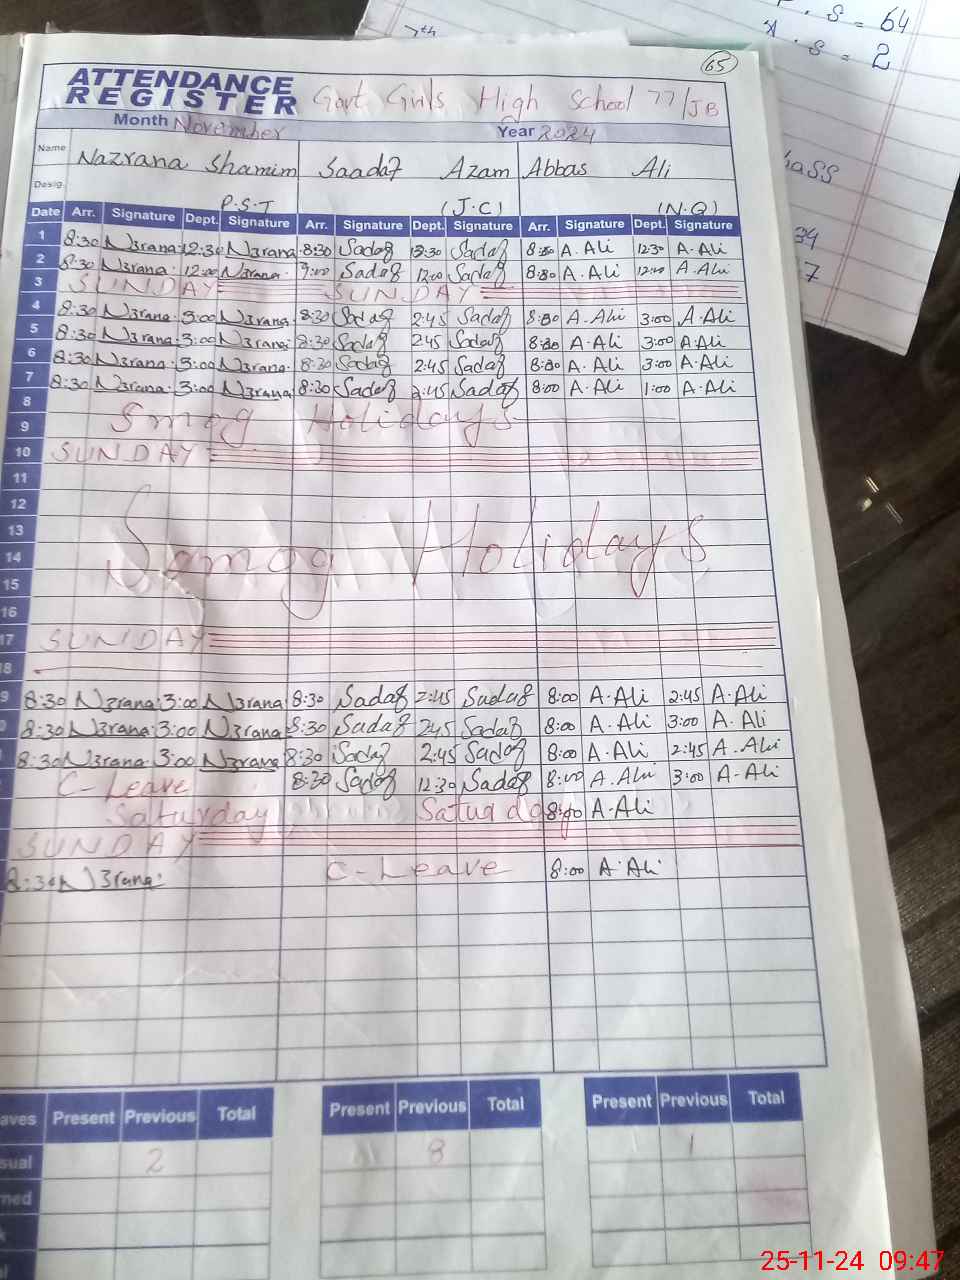 7th
· S = 64
· S = 2
65
ATTENDANCE
REGISTER Govt Girls High School 77/JB
Month November Year 2024
Name Nazrana Shamim Saadaf Azam Abbas Ali
Desig. P.S.T (J.C) (N.Q)
Date Arr. Signature Dept. Signature Arr. Signature Dept. Signature Arr. Signature Dept. Signature
1 8:30 N3rana 12:30 N3rana 8:30 Sadaf 12:30 Sadaf 8:30 A.Ali 12:30 A.Ali
2 8:30 N3rana 12:00 N3rana 9:00 Sadaf 12:00 Sadaf 8:30 A.Ali 12:00 A.Ali
3 SUNDAY SUNDAY
4 8:30 N3rana 3:00 N3rana 8:30 Sadaf 2:45 Sadaf 8:30 A.Ali 3:00 A.Ali
5 8:30 N3rana 3:00 N3rana 8:30 Sadaf 2:45 Sadaf 8:30 A.Ali 3:00 A.Ali
6 8:30 N3rana 3:00 N3rana 8:30 Sadaf 2:45 Sadaf 8:30 A.Ali 3:00 A.Ali
7 8:30 N3rana 3:00 N3rana 8:30 Sadaf 2:45 Sadaf 8:00 A.Ali 1:00 A.Ali
8
9 Smog Holidays
10 SUNDAY
11
12
13
14 Somog Holidays
15
16
17 SUNDAY
18
9 8:30 N3rana 3:00 N3rana 8:30 Sadaf 2:45 Sadaf 8:00 A.Ali 2:45 A.Ali
8:30 N3rana 3:00 N3rana 8:30 Sadaf 2:45 Sadaf 8:00 A.Ali 3:00 A.Ali
8:30 N3rana 3:00 N3rana 8:30 Sadaf 2:45 Sadaf 8:00 A.Ali 2:45 A.Ali
C-Leave 8:30 Sadaf 12:30 Sadaf 8:00 A.Ali 3:00 A-Ali
Saturday Satuaday 8:00 A.Ali
SUNDAY
8:30 N3rana C-Leave 8:00 A.Ali
aves Present Previous Total Present Previous Total Present Previous Total
sual 2 8 1
ned
25-11-24 09:47